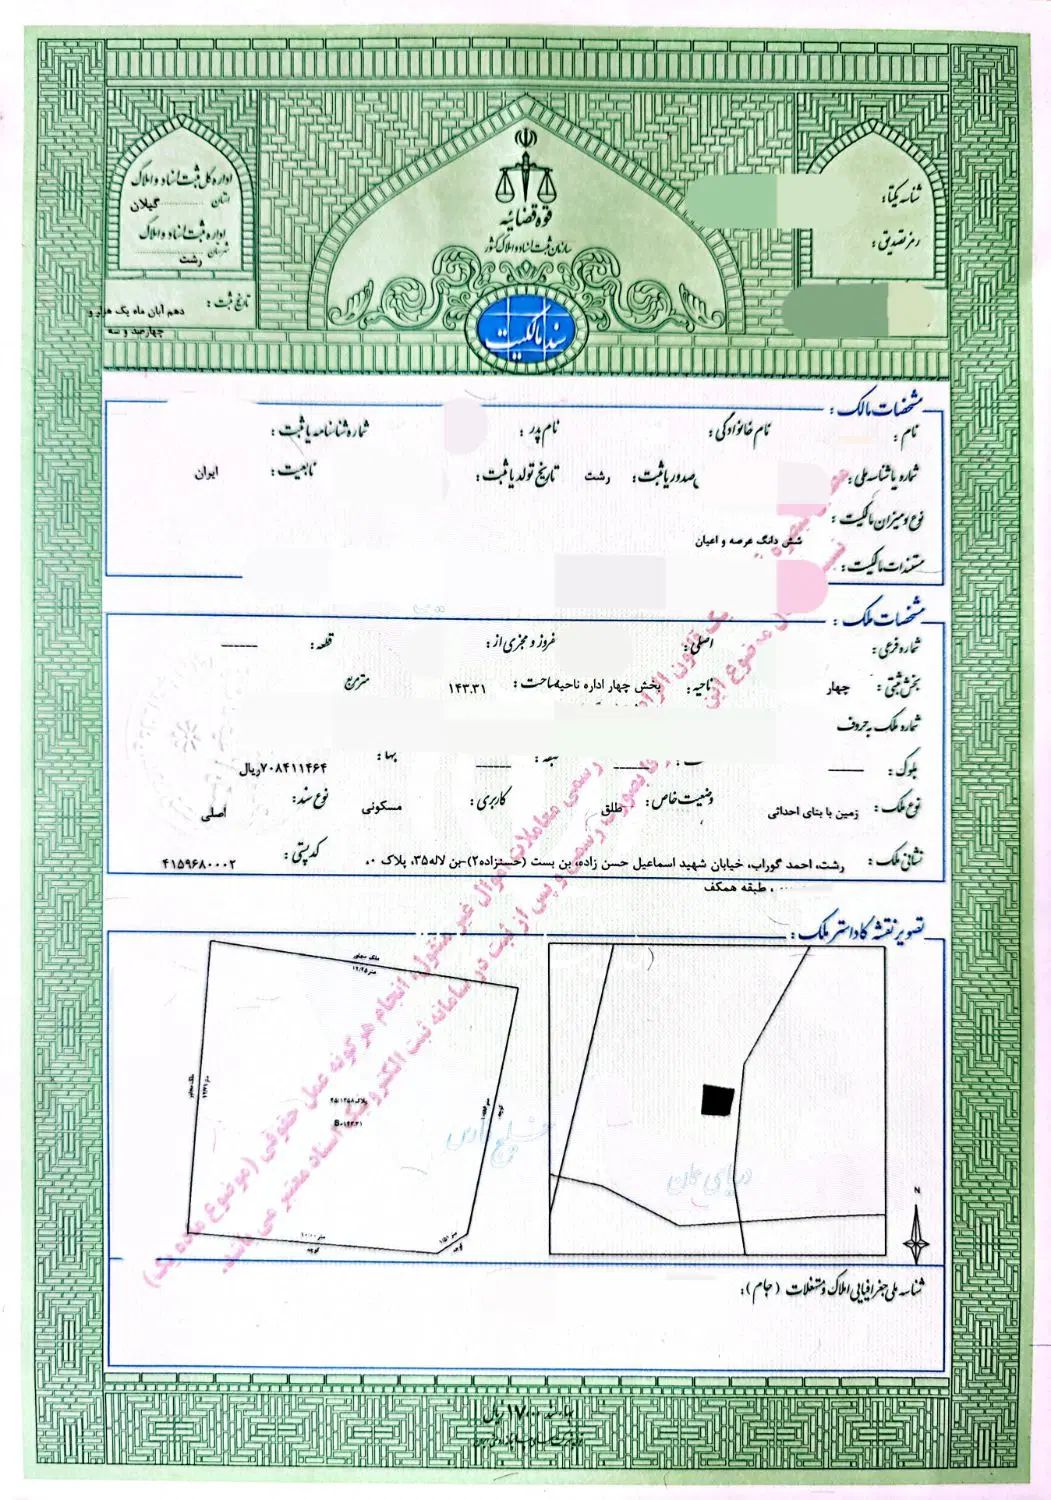 قوه قضائیه
سازمان ثبت اسناد و املاک کشور
سند مالکیت
شناسه یکتا:
رمز تصدیق:
اداره کل ثبت اسناد و املاک
استان گیلان
اداره ثبت اسناد و املاک
شهرستان رشت
تاریخ ثبت: دهم آبان ماه یک هزار و
چهارصد و سه
مشخصات مالک:
نام: نام خانوادگی: نام پدر: شماره شناسنامه یا ثبت:
شماره یا شناسه ملی: صدور یا ثبت: رشت تاریخ تولد یا ثبت: تابعیت: ایران
نوع و میزان مالکیت:
شش دانگ عرصه و اعیان
مستندات مالکیت:
مشخصات ملک:
شماره فرعی: اصلی: فروز و مجزی از: قطعه: ــــــ
بخش ثبتی: چهار ناحیه: بخش چهار اداره ناحیه مساحت: ۱۴۳.۳۱ متر مربع
شماره ملک به حروف
بلوک: ــــــ ــــــ ــــــ بها: ۷۰۸۴۱۱۴۶۴ریال
نوع ملک: زمین با بنای احداثی وضعیت خاص: طلق کاربری: مسکونی نوع سند: اصلی
نشانی ملک: رشت، احمد گوراب، خیابان شهید اسماعیل حسن زاده، بن بست (حسنزاده۲)-بن لاله۳۵، پلاک ۰، کد پستی: ۴۱۵۹۶۸۰۰۰۲
، طبقه همکف
تصویر نقشه کاداستر ملک:
ملک مجاور
ملک مجاور
کوچه
کوچه
N
خلیج فارس
دریای عمان
رسمی معاملات اموال غیر منقول، انجام هر گونه عمل حقوقی (موضوع ماده یک)
بصورت رسمی و پس از ثبت در سامانه ثبت الکترونیک اسناد معتبر می باشد.
شناسه ملی جغرافیایی املاک و مستغلات (جام):
بهاء سند ۱۷۰۰۰ ریال